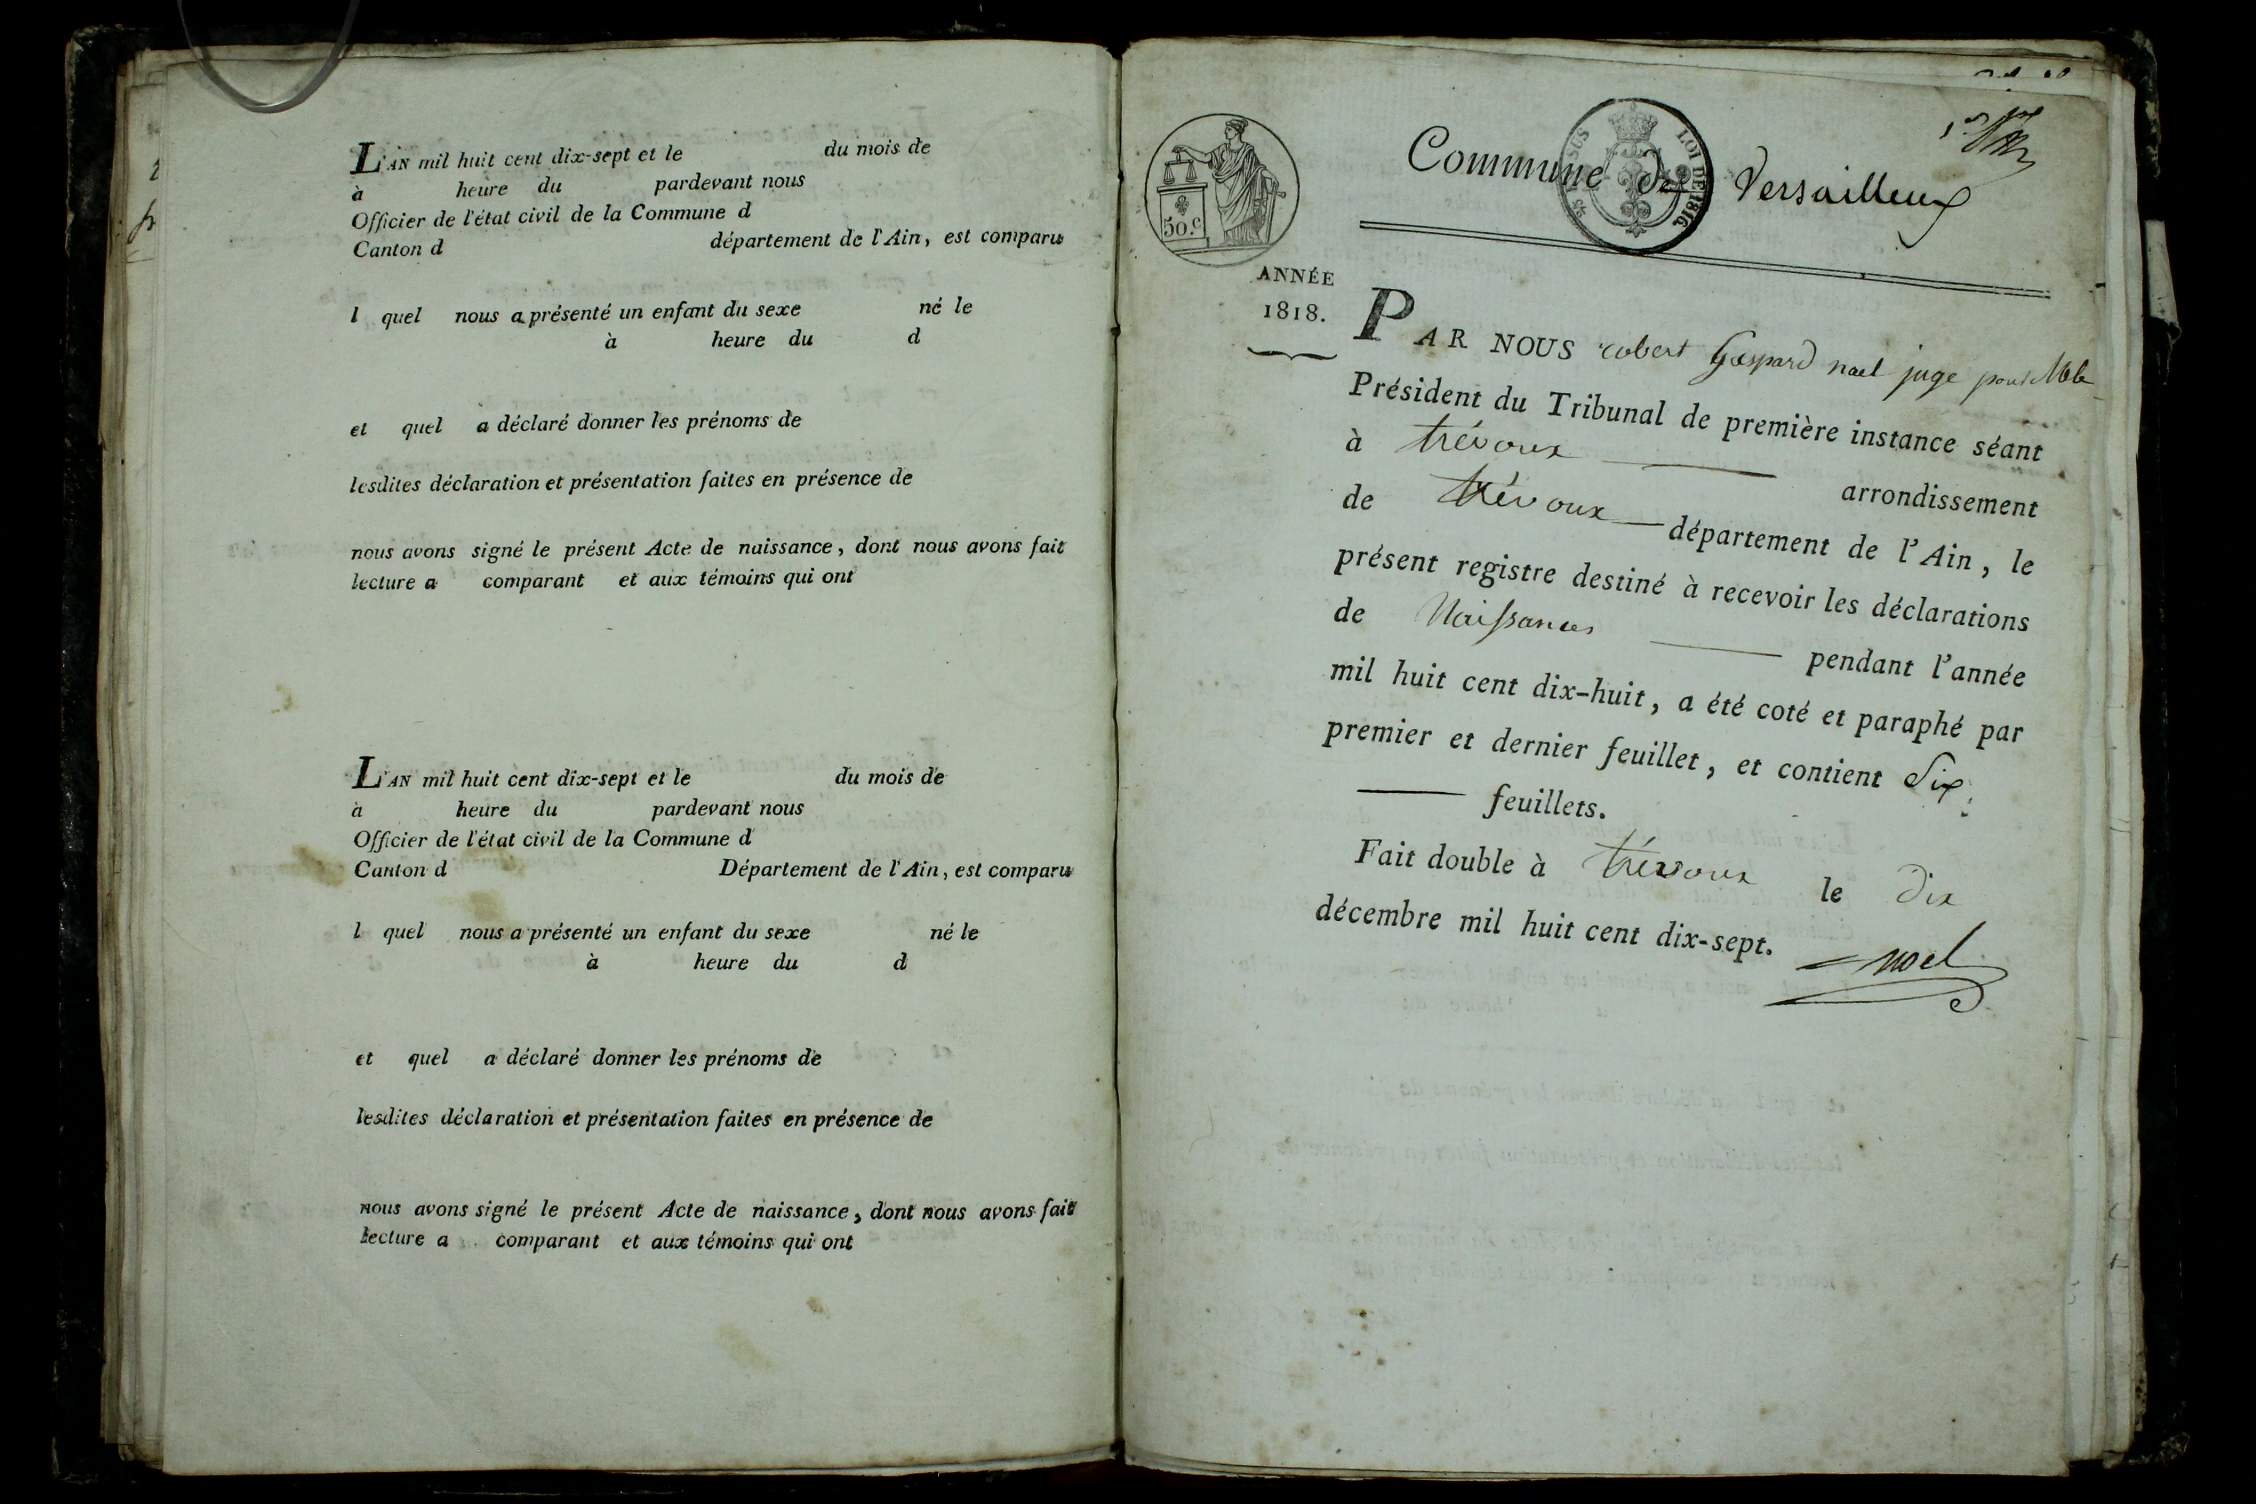 L'AN mil huit cent dix-sept et le du mois de
à heure du pardevant nous
Officier de l'état civil de la Commune d
Canton d département de l'Ain, est comparu
l quel nous a présenté un enfant du sexe né le
à heure du d
et quel a déclaré donner les prénoms de
lesdites déclaration et présentation faites en présence de
nous avons signé le présent Acte de naissance, dont nous avons fait
lecture a comparant et aux témoins qui ont
L'AN mil huit cent dix-sept et le du mois de
à heure du pardevant nous
Officier de l'état civil de la Commune d
Canton d Département de l'Ain, est comparu
l quel nous a présenté un enfant du sexe né le
à heure du d
et quel a déclaré donner les prénoms de
lesdites déclaration et présentation faites en présence de
nous avons signé le présent Acte de naissance, dont nous avons fait
lecture a comparant et aux témoins qui ont
50.c
LOI DE 1816.
Commune de Versailleux
ANNÉE
1818.
PAR NOUS robert Gaspard noel juge pour M le
Président du Tribunal de première instance séant
à trévoux arrondissement
de trévoux département de l'Ain, le
présent registre destiné à recevoir les déclarations
de Naissances pendant l'année
mil huit cent dix-huit, a été coté et paraphé par
premier et dernier feuillet, et contient Six
feuillets.
Fait double à trévoux le dix
décembre mil huit cent dix-sept.
noel